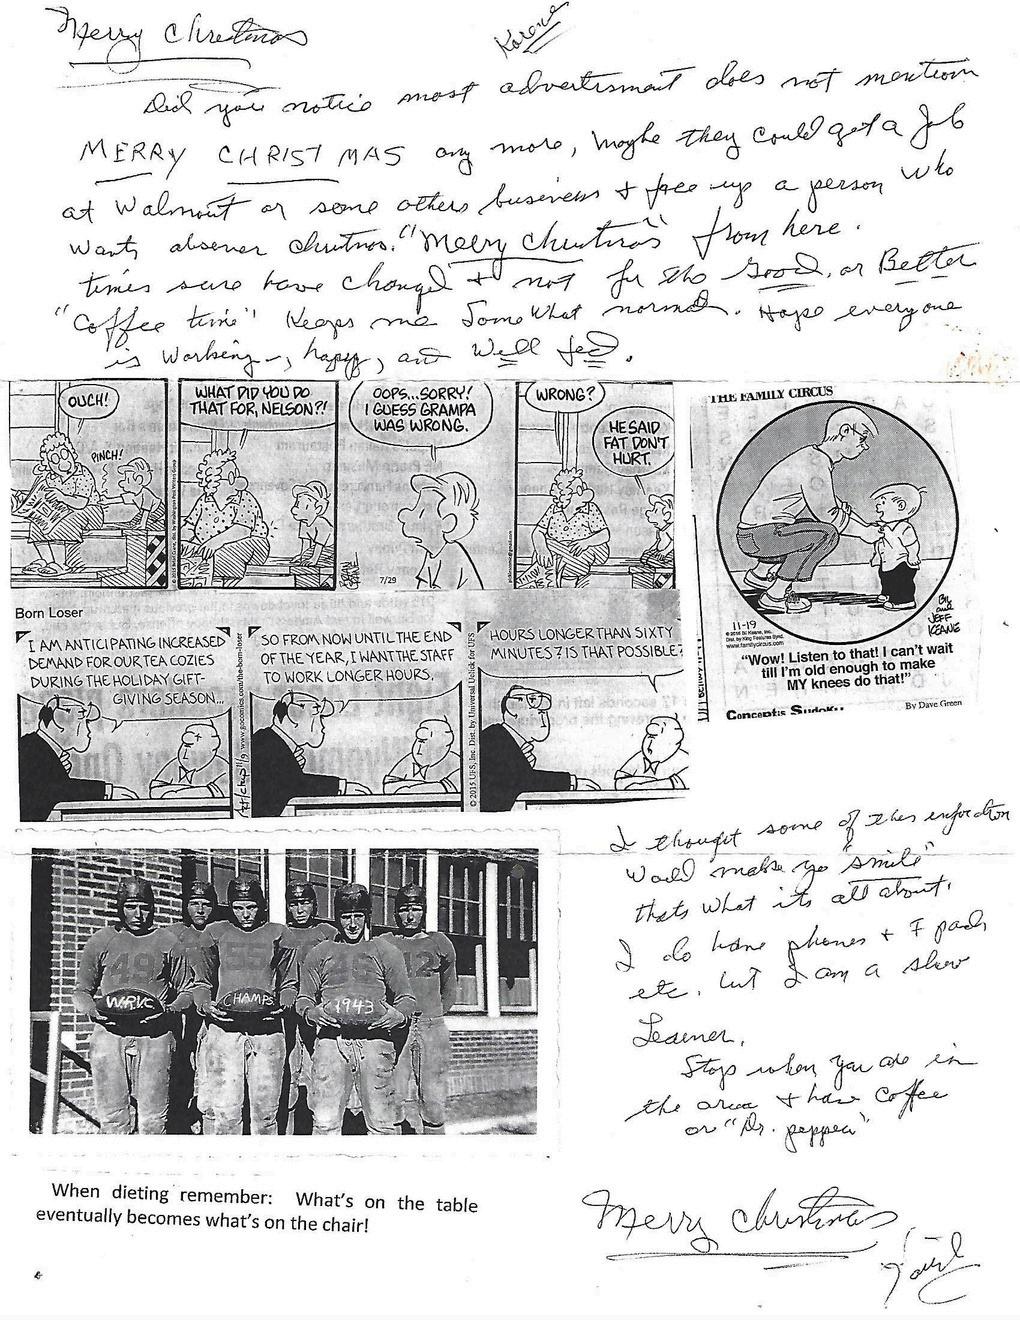 Merry Christmas
Karene
Did you notice most advertisment does not mention
MERRY CHRISTMAS any more, maybe they could get a Job
at Walmart or some others business + free up a person who
wants observe christmas. "Merry Christmas" from here.
times sure have changed + not for the Good, or Better
"Coffee time" Keeps me Somewhat normal. Hope everyone
is working, happy, and Well fed.
OUCH!
PINCH!
WHAT DID YOU DO
THAT FOR, NELSON?!
OOPS...SORRY!
I GUESS GRAMPA
WAS WRONG.
7/29
WRONG?
HE SAID
FAT DON'T
HURT.
THE FAMILY CIRCUS
BIL
and
JEFF
KEANE
11-19
© 2016 Bil Keane, Inc.
Dist. by King Features Synd.
www.familycircus.com
"Wow! Listen to that! I can't wait
till I'm old enough to make
MY knees do that!"
Conceptis Sudoku
By Dave Green
Born Loser
I AM ANTICIPATING INCREASED
DEMAND FOR OUR TEA COZIES
DURING THE HOLIDAY GIFT-
GIVING SEASON...
www.gocomics.com/the-born-loser
SO FROM NOW UNTIL THE END
OF THE YEAR, I WANT THE STAFF
TO WORK LONGER HOURS.
© 2015 UFS, Inc. Dist. by Universal Uclick for UFS
HOURS LONGER THAN SIXTY
MINUTES? IS THAT POSSIBLE?
49
55
12
WRVC
CHAMPS
1943
I thought some of this
would make yo "smile"
thats what its all about.
I do have phones + I pads
etc. but I am a slow
Learner.
Stop when you are in
the area + have Coffee
or "Dr. pepper"
When dieting remember: What's on the table
eventually becomes what's on the chair!
Merry Christmas